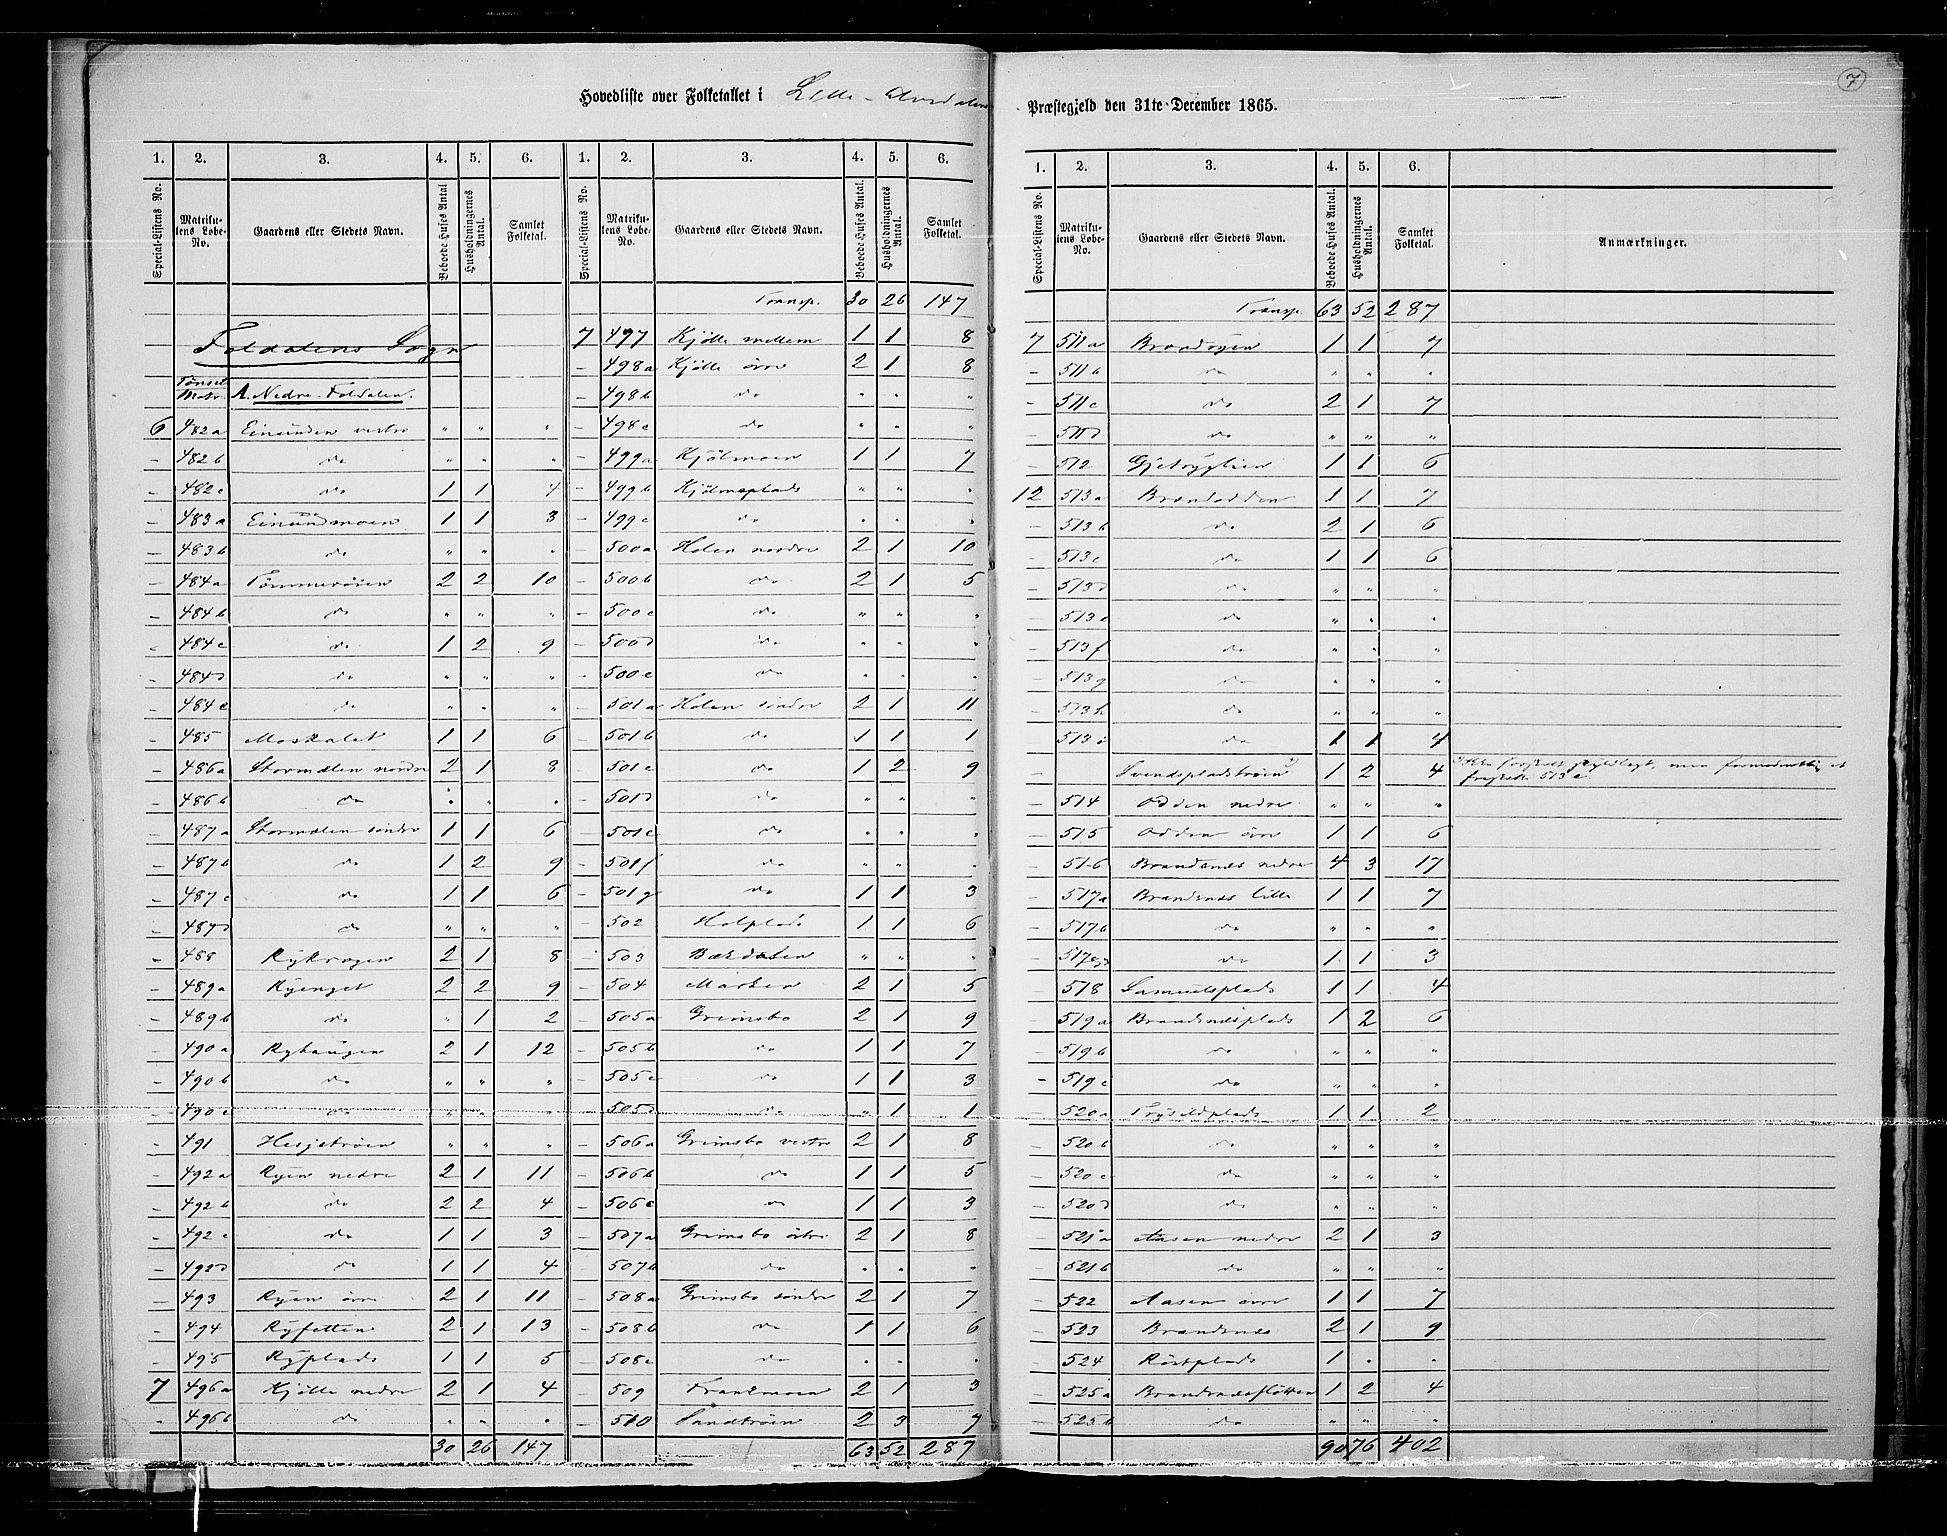 7
Hovedliste over Folketallet i Lille-Elvedalens Præstegjeld den 31te December 1865.
1. 2. 3. 4. 5. 6. 1. 2. 3. 4. 5. 6.
Special-Listens No. Matrikulens Løbe-No. Gaardens eller Stedets Navn. Beboede Huses Antal Husholdningernes Antal. Samlet Folketal. Special-Listens No. Matrikulens Løbe-No. Gaardens eller Stedets Navn. Beboede Huses Antal. Husholdningernes Antal. Samlet Folketal.
Foldalens Sogn
Tønset Matr. A. Nedre-Foldalen.
6 482a Einunden vestre " " "
- 482b do " " "
- 482c do 1 1 4
- 483a Einundmoen 1 1 3
- 483b do " " "
- 484a Tømmerøien 2 2 10
- 484b do " " "
- 484c do 1 2 9
- 484d do " " "
- 484e do " " "
- 485 Moskalet 1 1 6
- 486a Stormælen nordre 2 1 8
- 486b do " " "
- 487a Stormælen søndre 1 1 6
- 487b do 1 2 9
- 487c do 1 1 6
- 487d do " " "
- 488 Rykrogen 2 1 8
- 489a Ryenget 2 2 9
- 489b do " 1 2
- 490a Ryhaugen 2 1 12
- 490b do " " "
- 490c do " " "
- 491 Hesjetrøen " " "
- 492a Ryen nedre 2 1 11
- 492b do 2 2 4
- 492c do 1 1 3
- 492d do 1 1 4
- 493 Ryen øvre 2 1 11
- 494 Ryfetten 2 1 13
- 495 Ryplads 1 1 5
7 496a Kjølle nedre 2 1 4
- 496b do " " "
30 26 147
Transp. 30 26 147
7 497 Kjølle mellem 1 1 8
- 498a Kjølle øvre 2 1 8
- 498b do " " "
- 498c do " " "
- 499a Kjølmoen 1 1 7
- 499b Kjølmoplads " " "
- 499c do " " "
- 500a Holen nordre 2 1 10
- 500b do 2 1 5
- 500c do " " "
- 500d do " " "
- 500e do " " "
- 501a Holen søndre 2 1 11
- 501b do 1 1 1
- 501c do 1 2 9
- 501d do " " "
- 501e do " " "
- 501f do " " "
- 501g do 1 1 3
- 502 Holplads 1 1 6
- 503 Bækdalen " " "
- 504 Marken 2 1 5
- 505a Grimsbo 2 1 9
- 505b do 1 1 7
- 505c do 1 1 3
- 505d do " 1 1
- 506a Grimsbo vestre 2 1 8
- 506b do 1 1 5
- 506c do 1 1 3
- 507a Grimsbo østre 2 1 8
- 507b do " " "
- 508a Grimsbo søndre 2 1 7
- 508b do 1 1 6
- 508c do " " "
- 509 Frankmoen 2 1 3
- 510 Sandtrøen 2 3 7
63 52 287
1. 2. 3. 4. 5. 6.
Special-Listens No. Matrikulens Løbe-No. Gaardens eller Stedets Navn. Beboede Huses Antal. Husholdningernes Antal. Samlet Folketal. Anmærkninger.
Transp. 63 52 287
7 511a 1 1 7
- 511b do " " "
- 511c do 2 1 7
- 511d do " " "
- 512 1 1 6
12 513a Brandodden 1 1 7
- 513b do 2 1 6
- 513c do 1 1 6
- 513d do " " "
- 513e do " " "
- 513f do " " "
- 513g do " " "
- 513h do " " "
- 513i do 1 1 4
- Svendspladstrøen 1 2 4 Ikke særskilt skyldlagt, men formodentlig et
513a.
- 514 Odden nedre " " "
- 515 Odden øvre 1 1 6
- 516 Brandsnes nedre 4 3 17
- 517a Brandsnes lille 1 1 7
- 517b do " " "
- 517c do 1 1 3
- 518 Samuelsplads 1 1 4
- 519a Brandsnesplads 1 2 6
- 519b do " " "
- 519c do " " "
- 520a Trysildplads 1 1 2
- 520b do " " "
- 520c do " " "
- 520d do " " "
- 521a Aasen nedre 2 1 3
- 521b do " " "
- 522 Aasen øvre 1 1 7
- 523 Brandsnes 2 1 9
- 524 Røstplads 1 " "
- 525a Brandsnesfløtten 1 2 4
- 525b do " " "
90 76 402